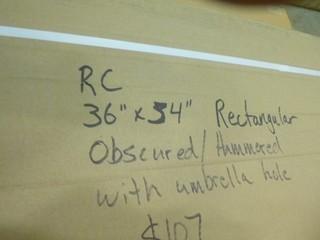 RC
36" x 54" Rectangular
Obscured/Hammered
with umbrella hole
$107